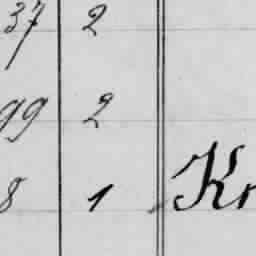 37 2
99 2
8 1 Kr